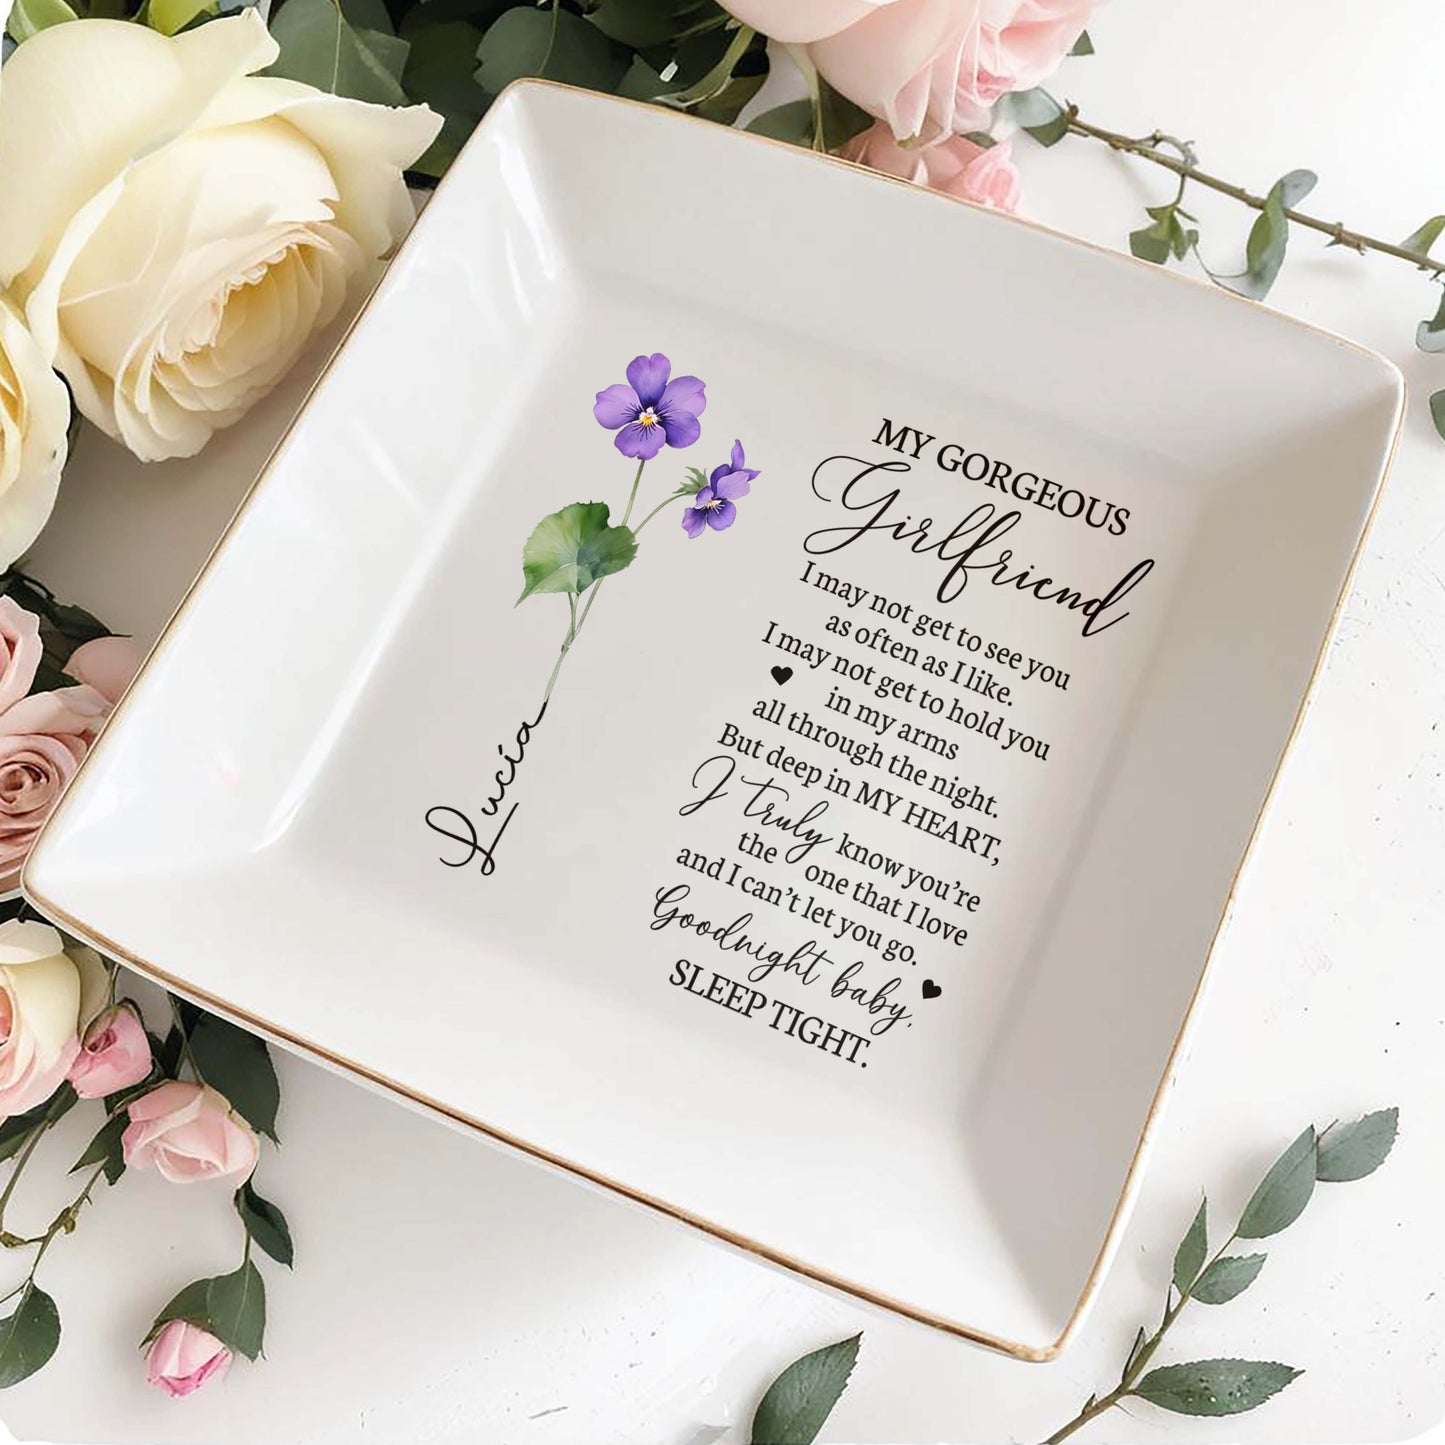 Lucía
MY GORGEOUS
Girlfriend
I may not get to see you
as often as I like.
I may not get to hold you
in my arms
all through the night.
But deep in MY HEART,
I truly know you're
the one that I love
and I can't let you go.
Goodnight baby,
SLEEP TIGHT.